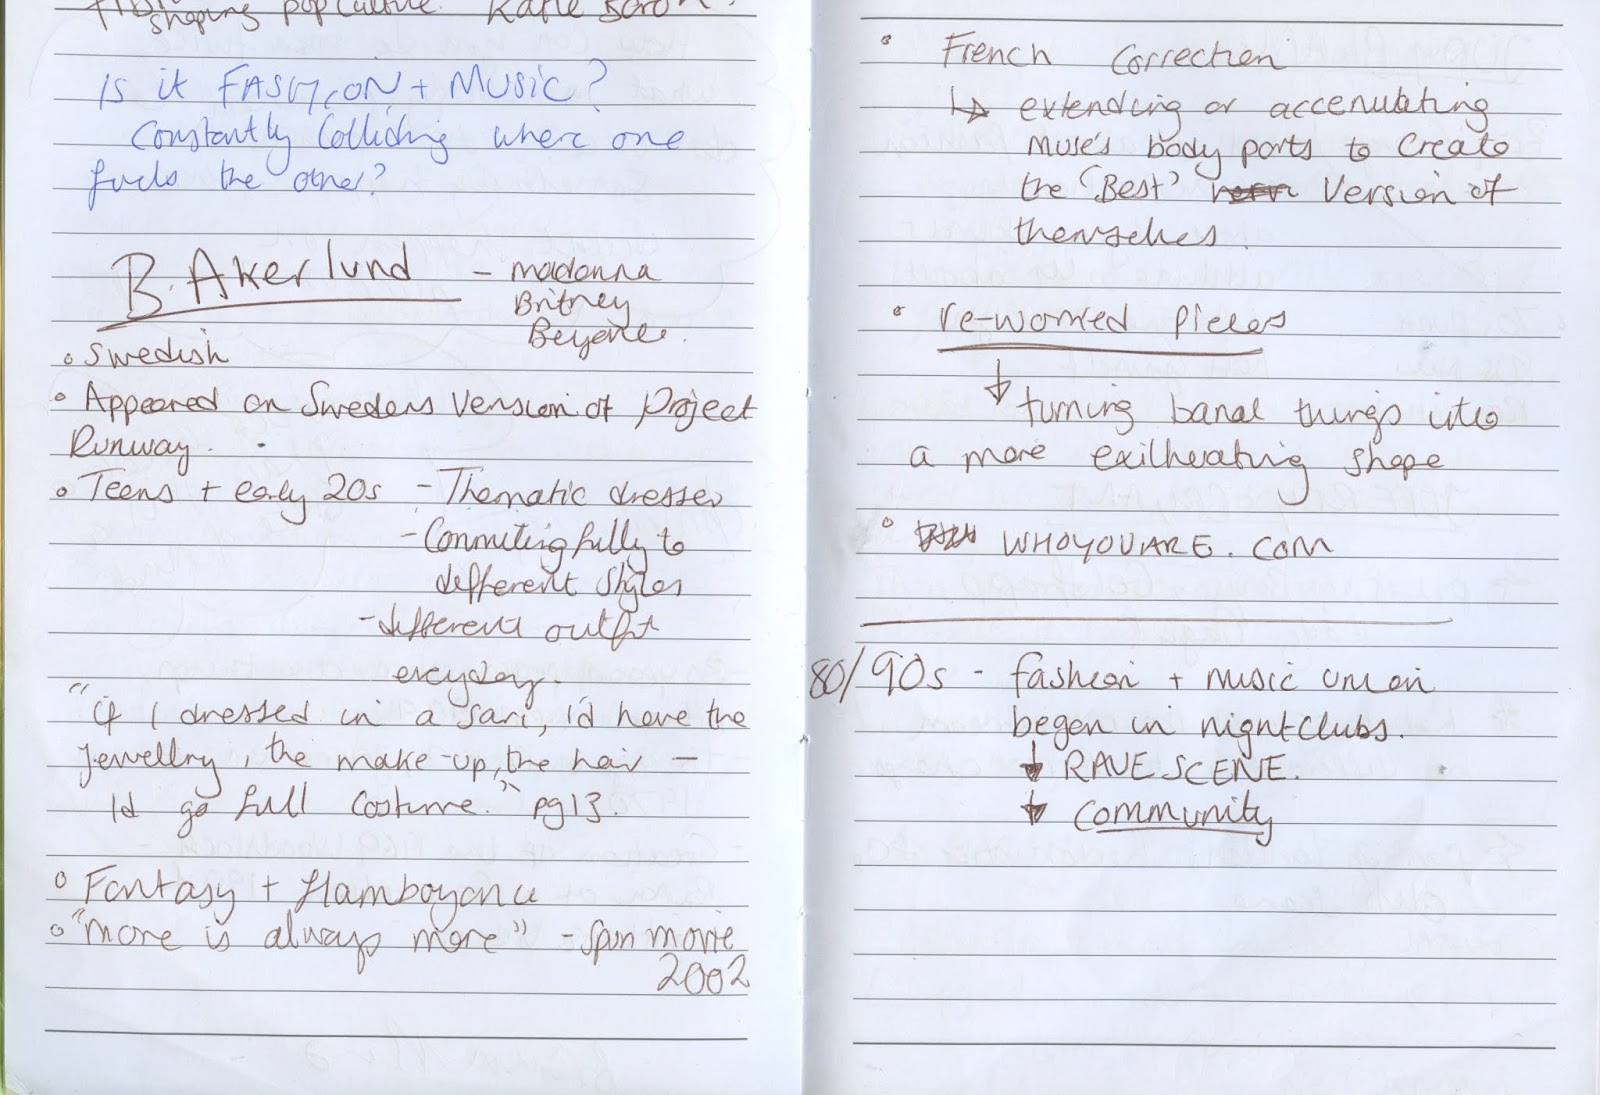 shaping pop culture. Katie Baron.
Is it FASHION + MUSIC?
Constantly Colliding where one
fuels the other?
B. Akerlund - madonna
Britney
Beyonce.
• Swedish
• Appeared on Swedens Version of Project
Runway.
• Teens + early 20s - Thematic dresser
- Commiting fully to
different styles
- different outfit
everyday.
"if I dressed in a sari, i'd have the
jewellry, the make-up, the hair -
I'd go full costume." pg 13.
• Fantasy + flamboyance
• "more is always more" - Spun movie
2002
• French Correction
↳ extending or accenuating
Muse's body parts to create
the 'Best' Version of
themselves.
• re-worked pieces
↓ turning banal things into
a more exilherating shape
• WHOYOUARE.COM
80/90s - fashion + music union
began in nightclubs.
↓ RAVE SCENE.
↓ Community